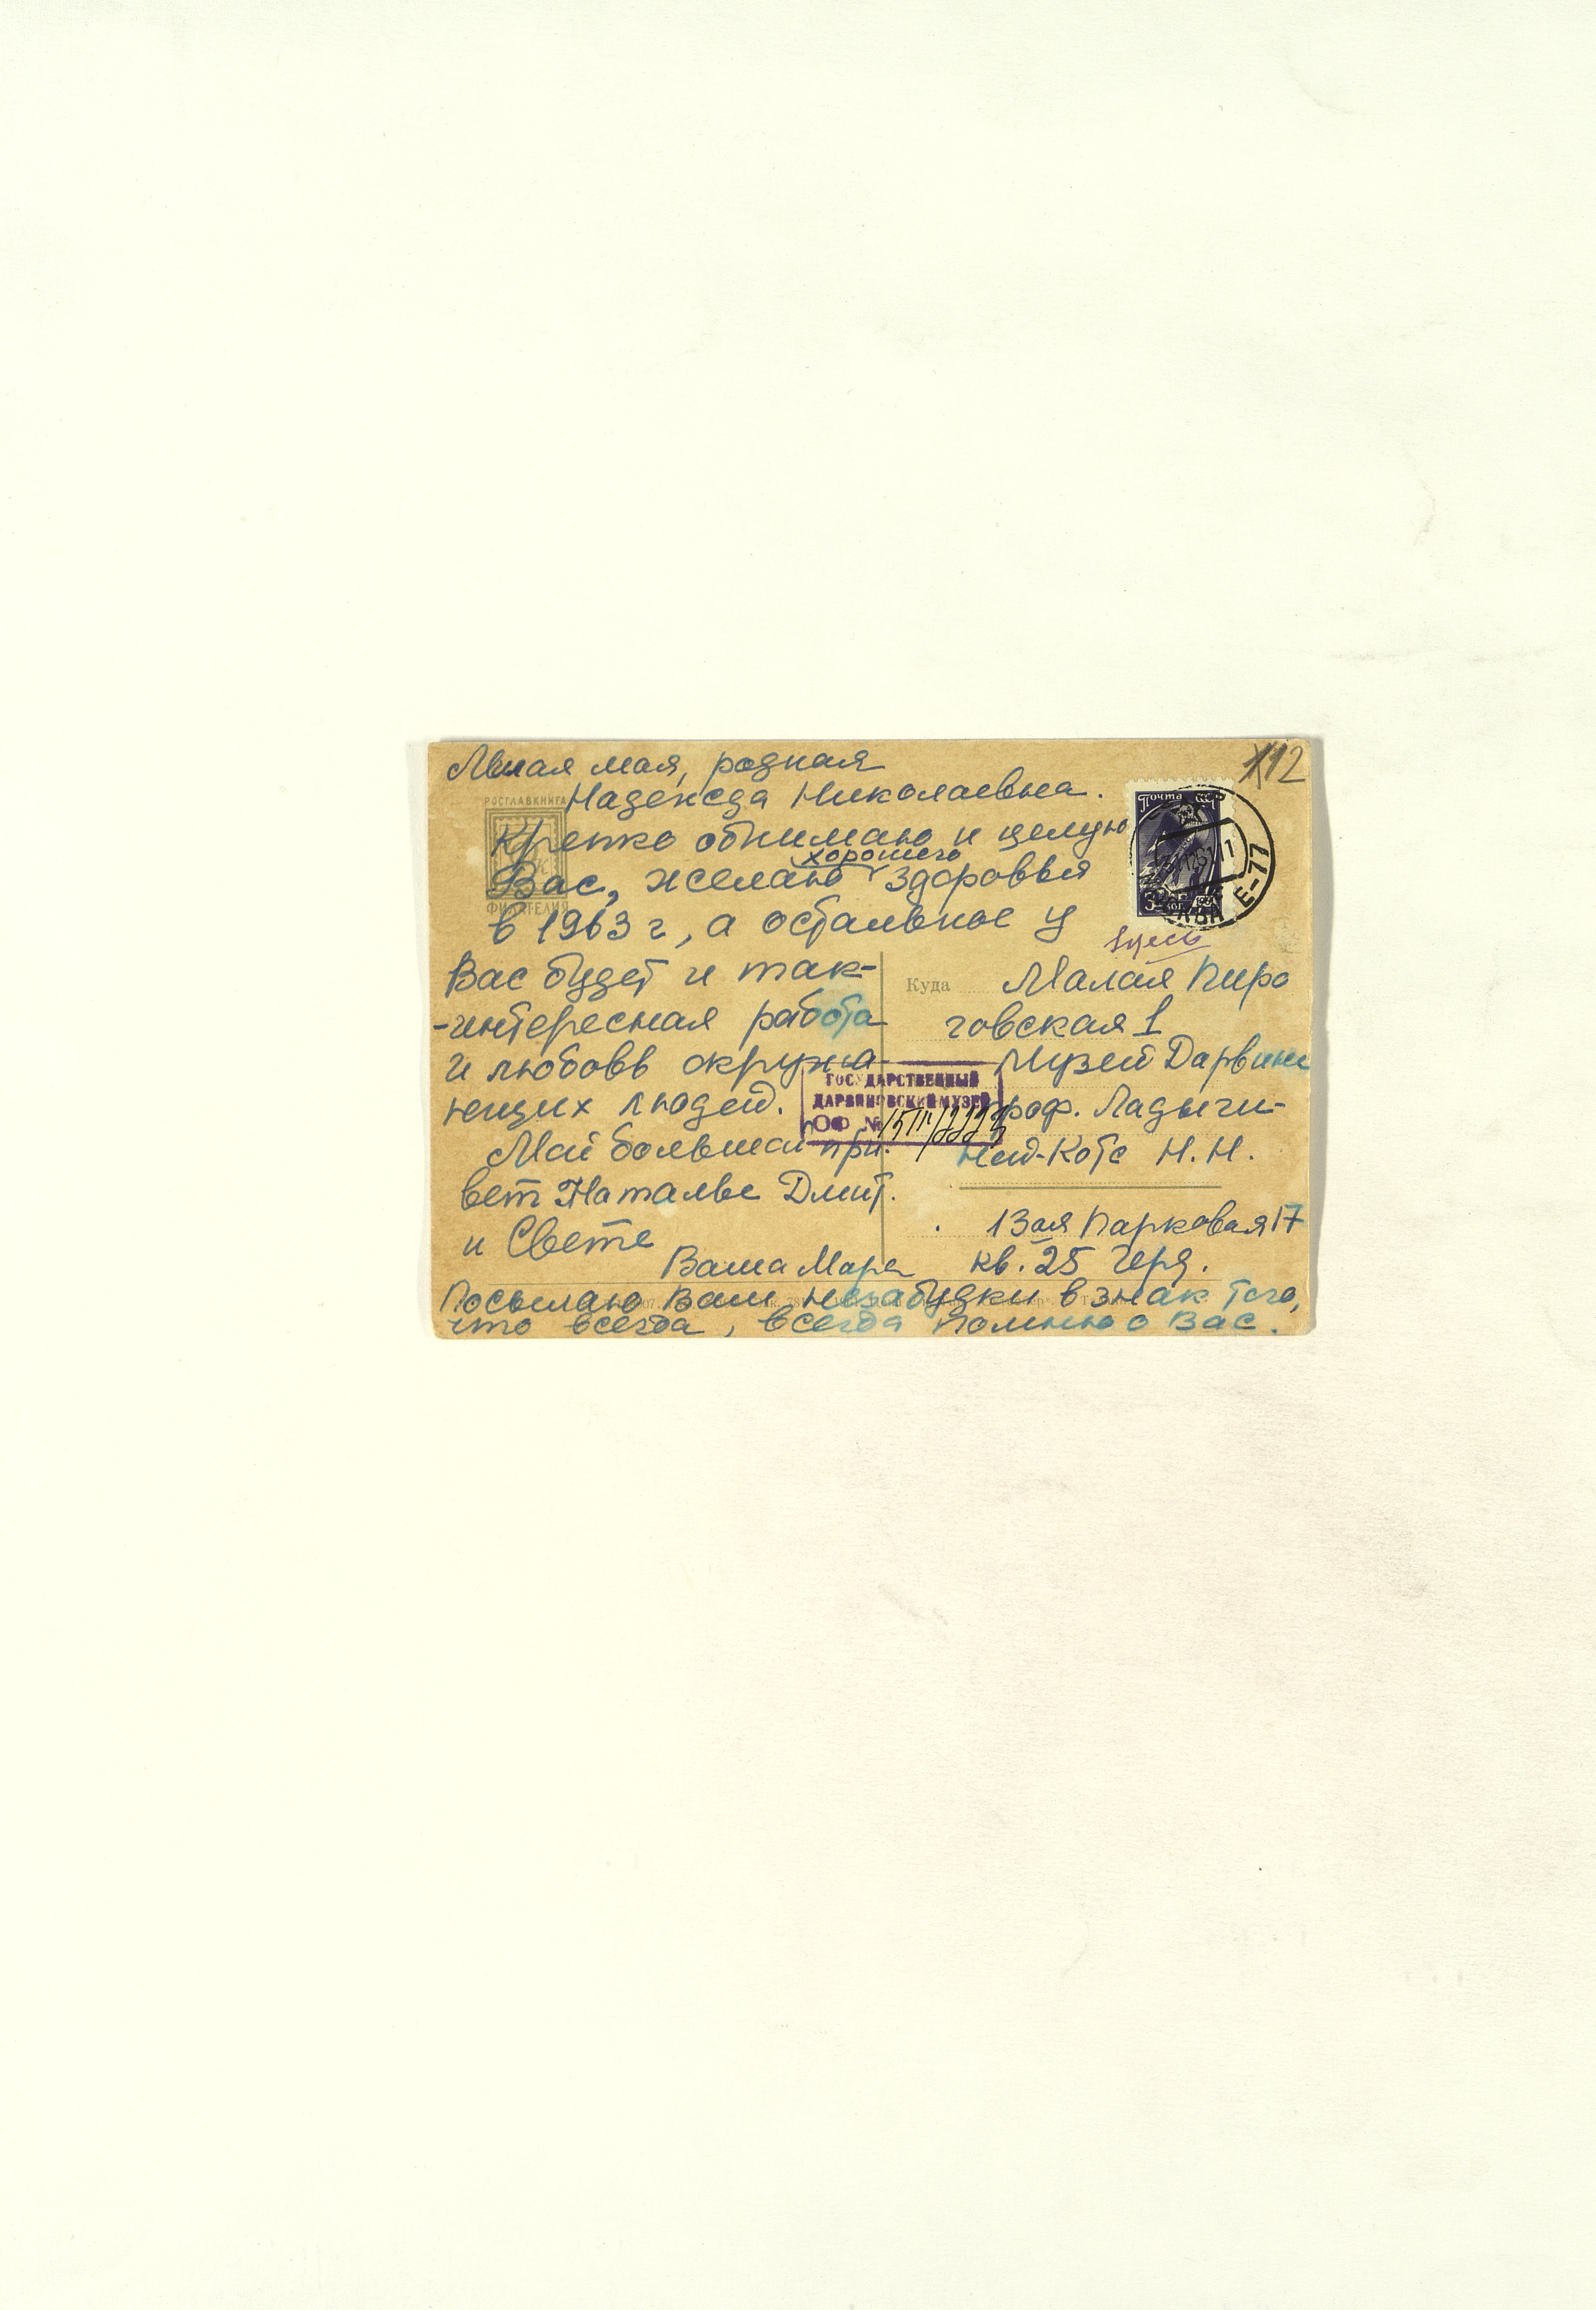 Милая моя, родная
Надежда Николаевна.
Крепко обнимаю и целую
хорошего
Вас, желаю здоровья
в 1963 г, а остальное у
Вас будет и так-
-интересная работа
и любовь окружа-
ющих людей.
Мой большой при-
вет Наталье Дмит.
и Свете
Ваша Мара
Посылаю Вам незабудки в знак того,
что всегда, всегда помню о Вас.
РОСГЛАВКНИГА
ФИЛАТЕЛИЯ
12
Почта СССР
Е-77
Здесь
Куда
Малая Пиро
говская 1
Музей Дарвина
проф. Ладыги-
ной-Котс Н.Н.
13ая Парковая 17
кв. 25 Черд.
ГОСУДАРСТВЕННЫЙ
ДАРВИНОВСКИЙ МУЗЕЙ
ОФ №